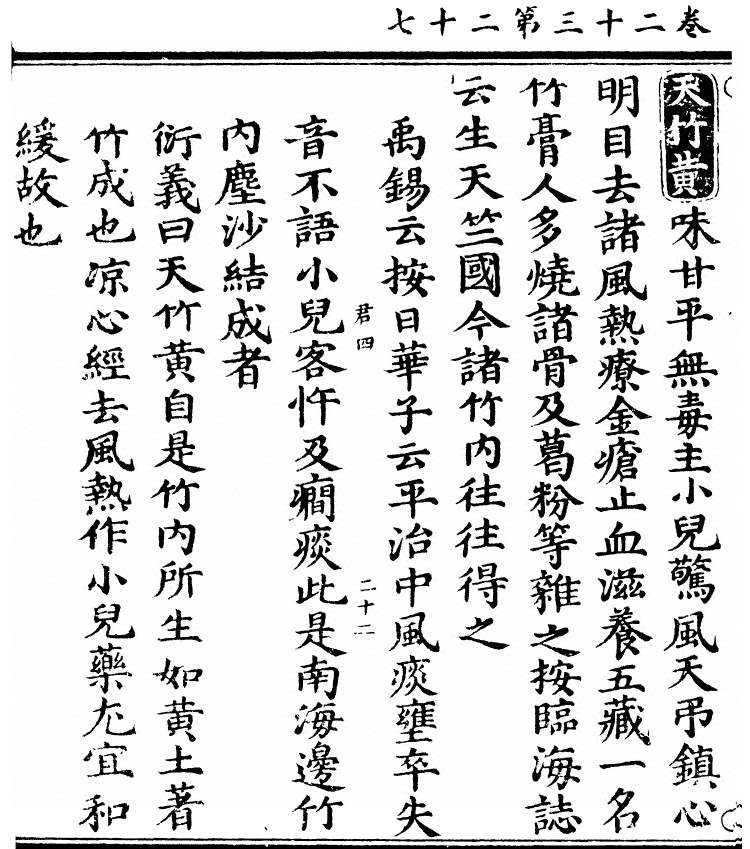 卷二十三第二十七
天竹黄味甘平無毒主小兒驚風天弔鎮心
明目去諸風熱療金瘡止血滋養五藏一名
竹膏人多燒諸骨及葛粉等雜之按臨海誌
云生天竺國今諸竹内往往得之
禹錫云按日華子云平治中風痰壅卒失
君四
二十二
音不語小兒客忤及癇痰此是南海邊竹
内塵沙結成者
衍義曰天竹黄自是竹内所生如黄土著
竹成也凉心經去風熱作小兒藥尤宜和
緩故也